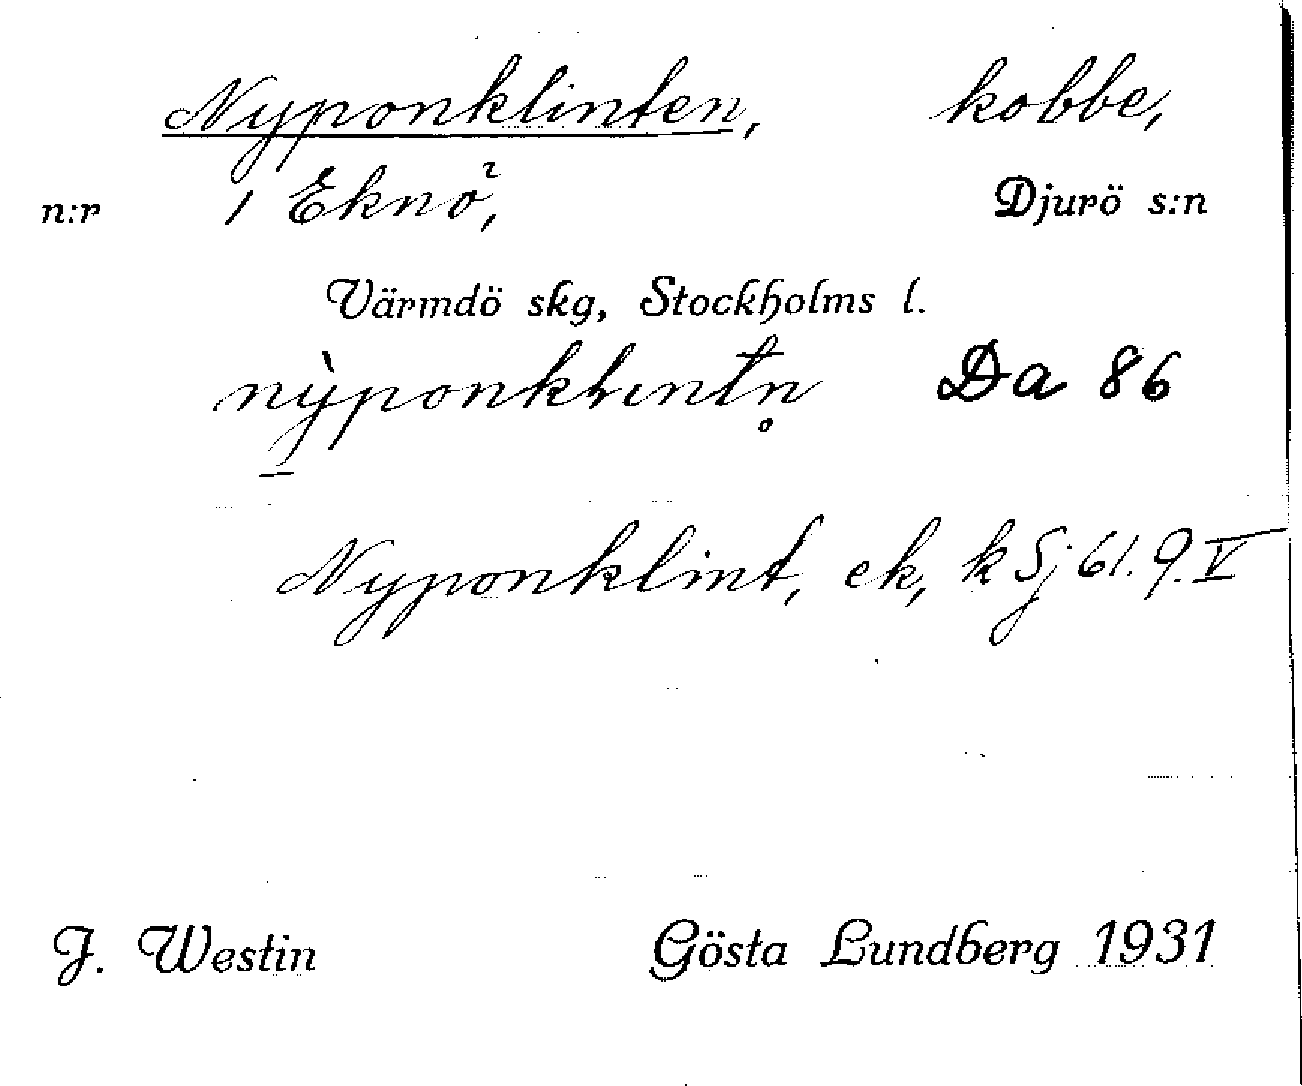 Nyponklinten, kobbe,
n:r 1 Eknö, Djurö s:n
Värmdö skg, Stockholms l.
nỳponklıntn̥ Da 86
Nyponklint, ek, k Sj 61. 9. V
J. Westin Gösta Lundberg 1931